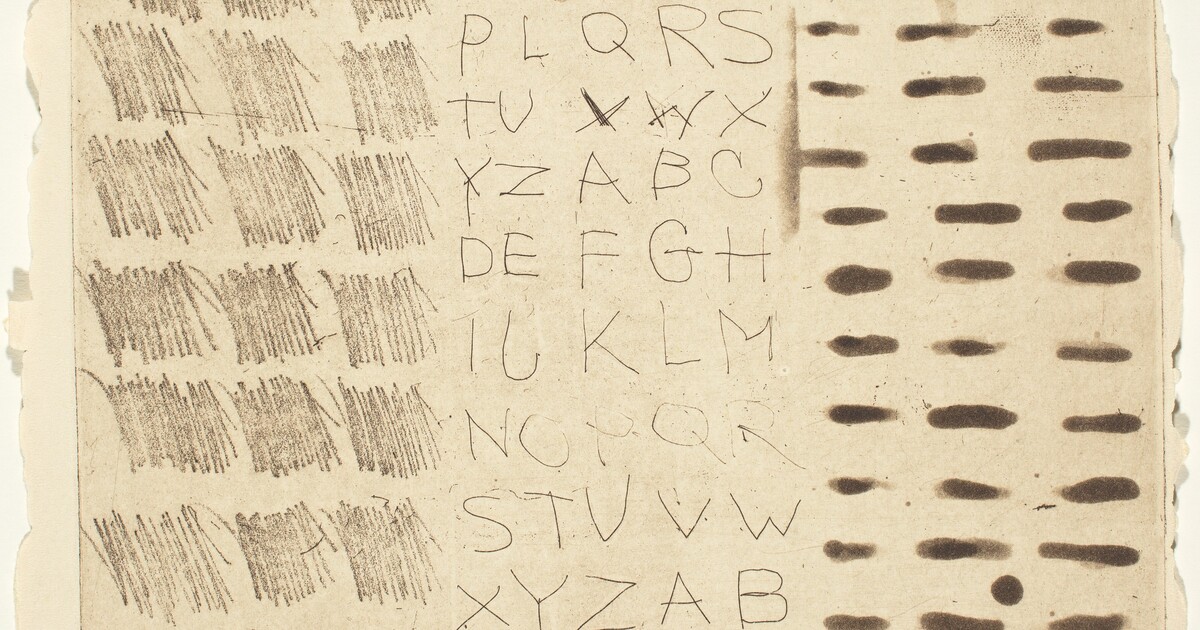 P L Q R S
T U V W X
Y Z A B C
D E F G H
I J K L M
N O P Q R
S T U V W
X Y Z A B